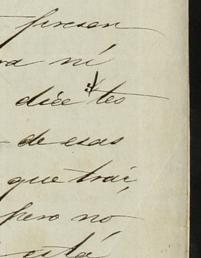 presen
ra ni
dice tes
de esas
que trai,
pero no
está